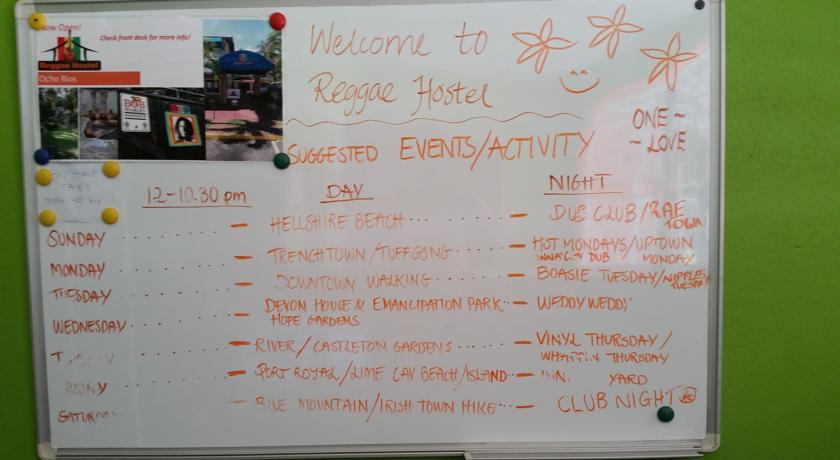 Now Open!
Check front desk for more info!
Reggae Hostel
Ocho Rios
BOB
MARLEY
Welcome to
Reggae Hostel
ONE ~
~ LOVE
SUGGESTED EVENTS/ACTIVITY
ON TIME
TAXI
12-10.30 pm DAY NIGHT
SUNDAY HELLSHIRE BEACH DUB CLUB/RAE TOWN
MONDAY TRENCHTOWN/TUFFGONG HOT MONDAYS/UPTOWN MONDAY
DUB
TUESDAY DOWNTOWN WALKING BOASIE TUESDAY/NIPPLES TUESDAY
WEDNESDAY DEVON HOUSE & EMANCIPATION PARK WEDDY WEDDY
HOPE GARDENS
T RIVER/CASTLETON GARDENS VINYL THURSDAY/
THURSDAY
PORT ROYAL/LIME CAY BEACH/ISLAND YARD
MOUNTAIN/IRISH TOWN HIKE CLUB NIGHT